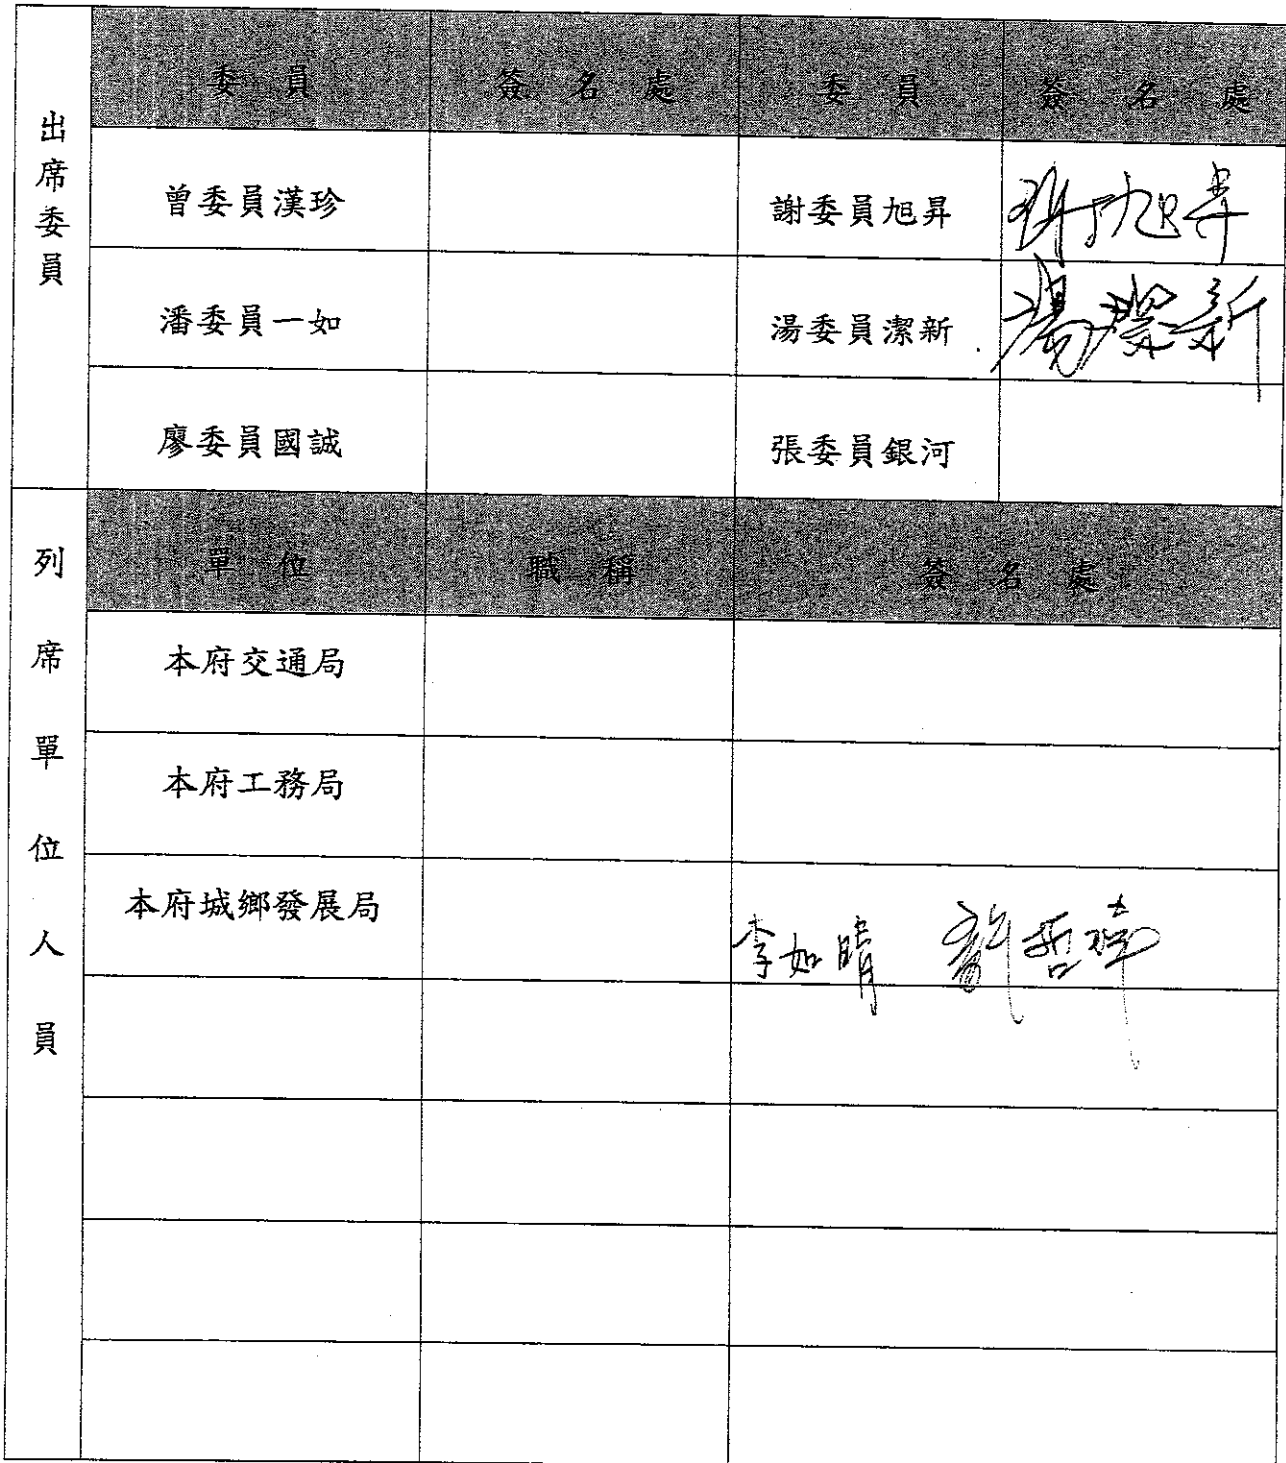 出席委員
委員 簽名處 委員 簽名處
曾委員漢珍 謝委員旭昇 謝旭昇
潘委員一如 湯委員潔新 湯潔新
廖委員國誠 張委員銀河
列席單位人員
單位 職稱 簽名處
本府交通局
本府工務局
本府城鄉發展局 李如晴